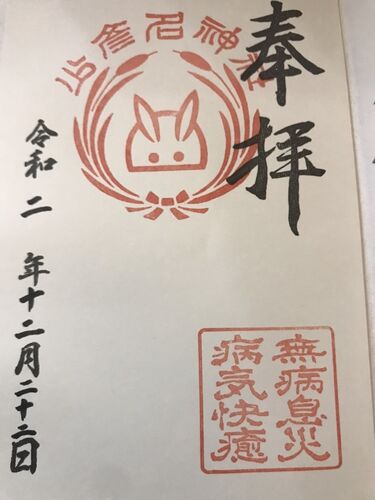 奉拝
少彦名神社
無病息災
病気快癒
令和二年十二月二十二日